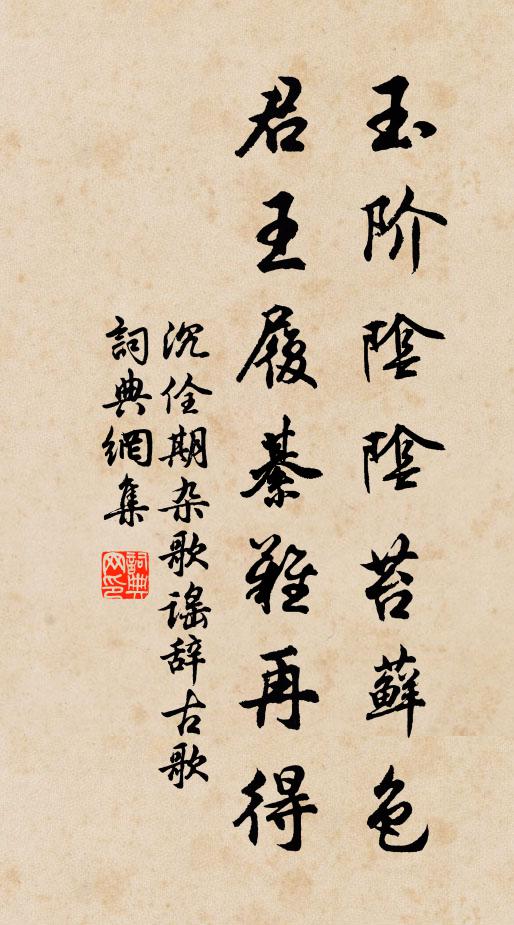 玉阶陰陰苔蘚色
君王履綦難再得
沉佺期杂歌谣辞古歌
詞典網集
詞典
网印